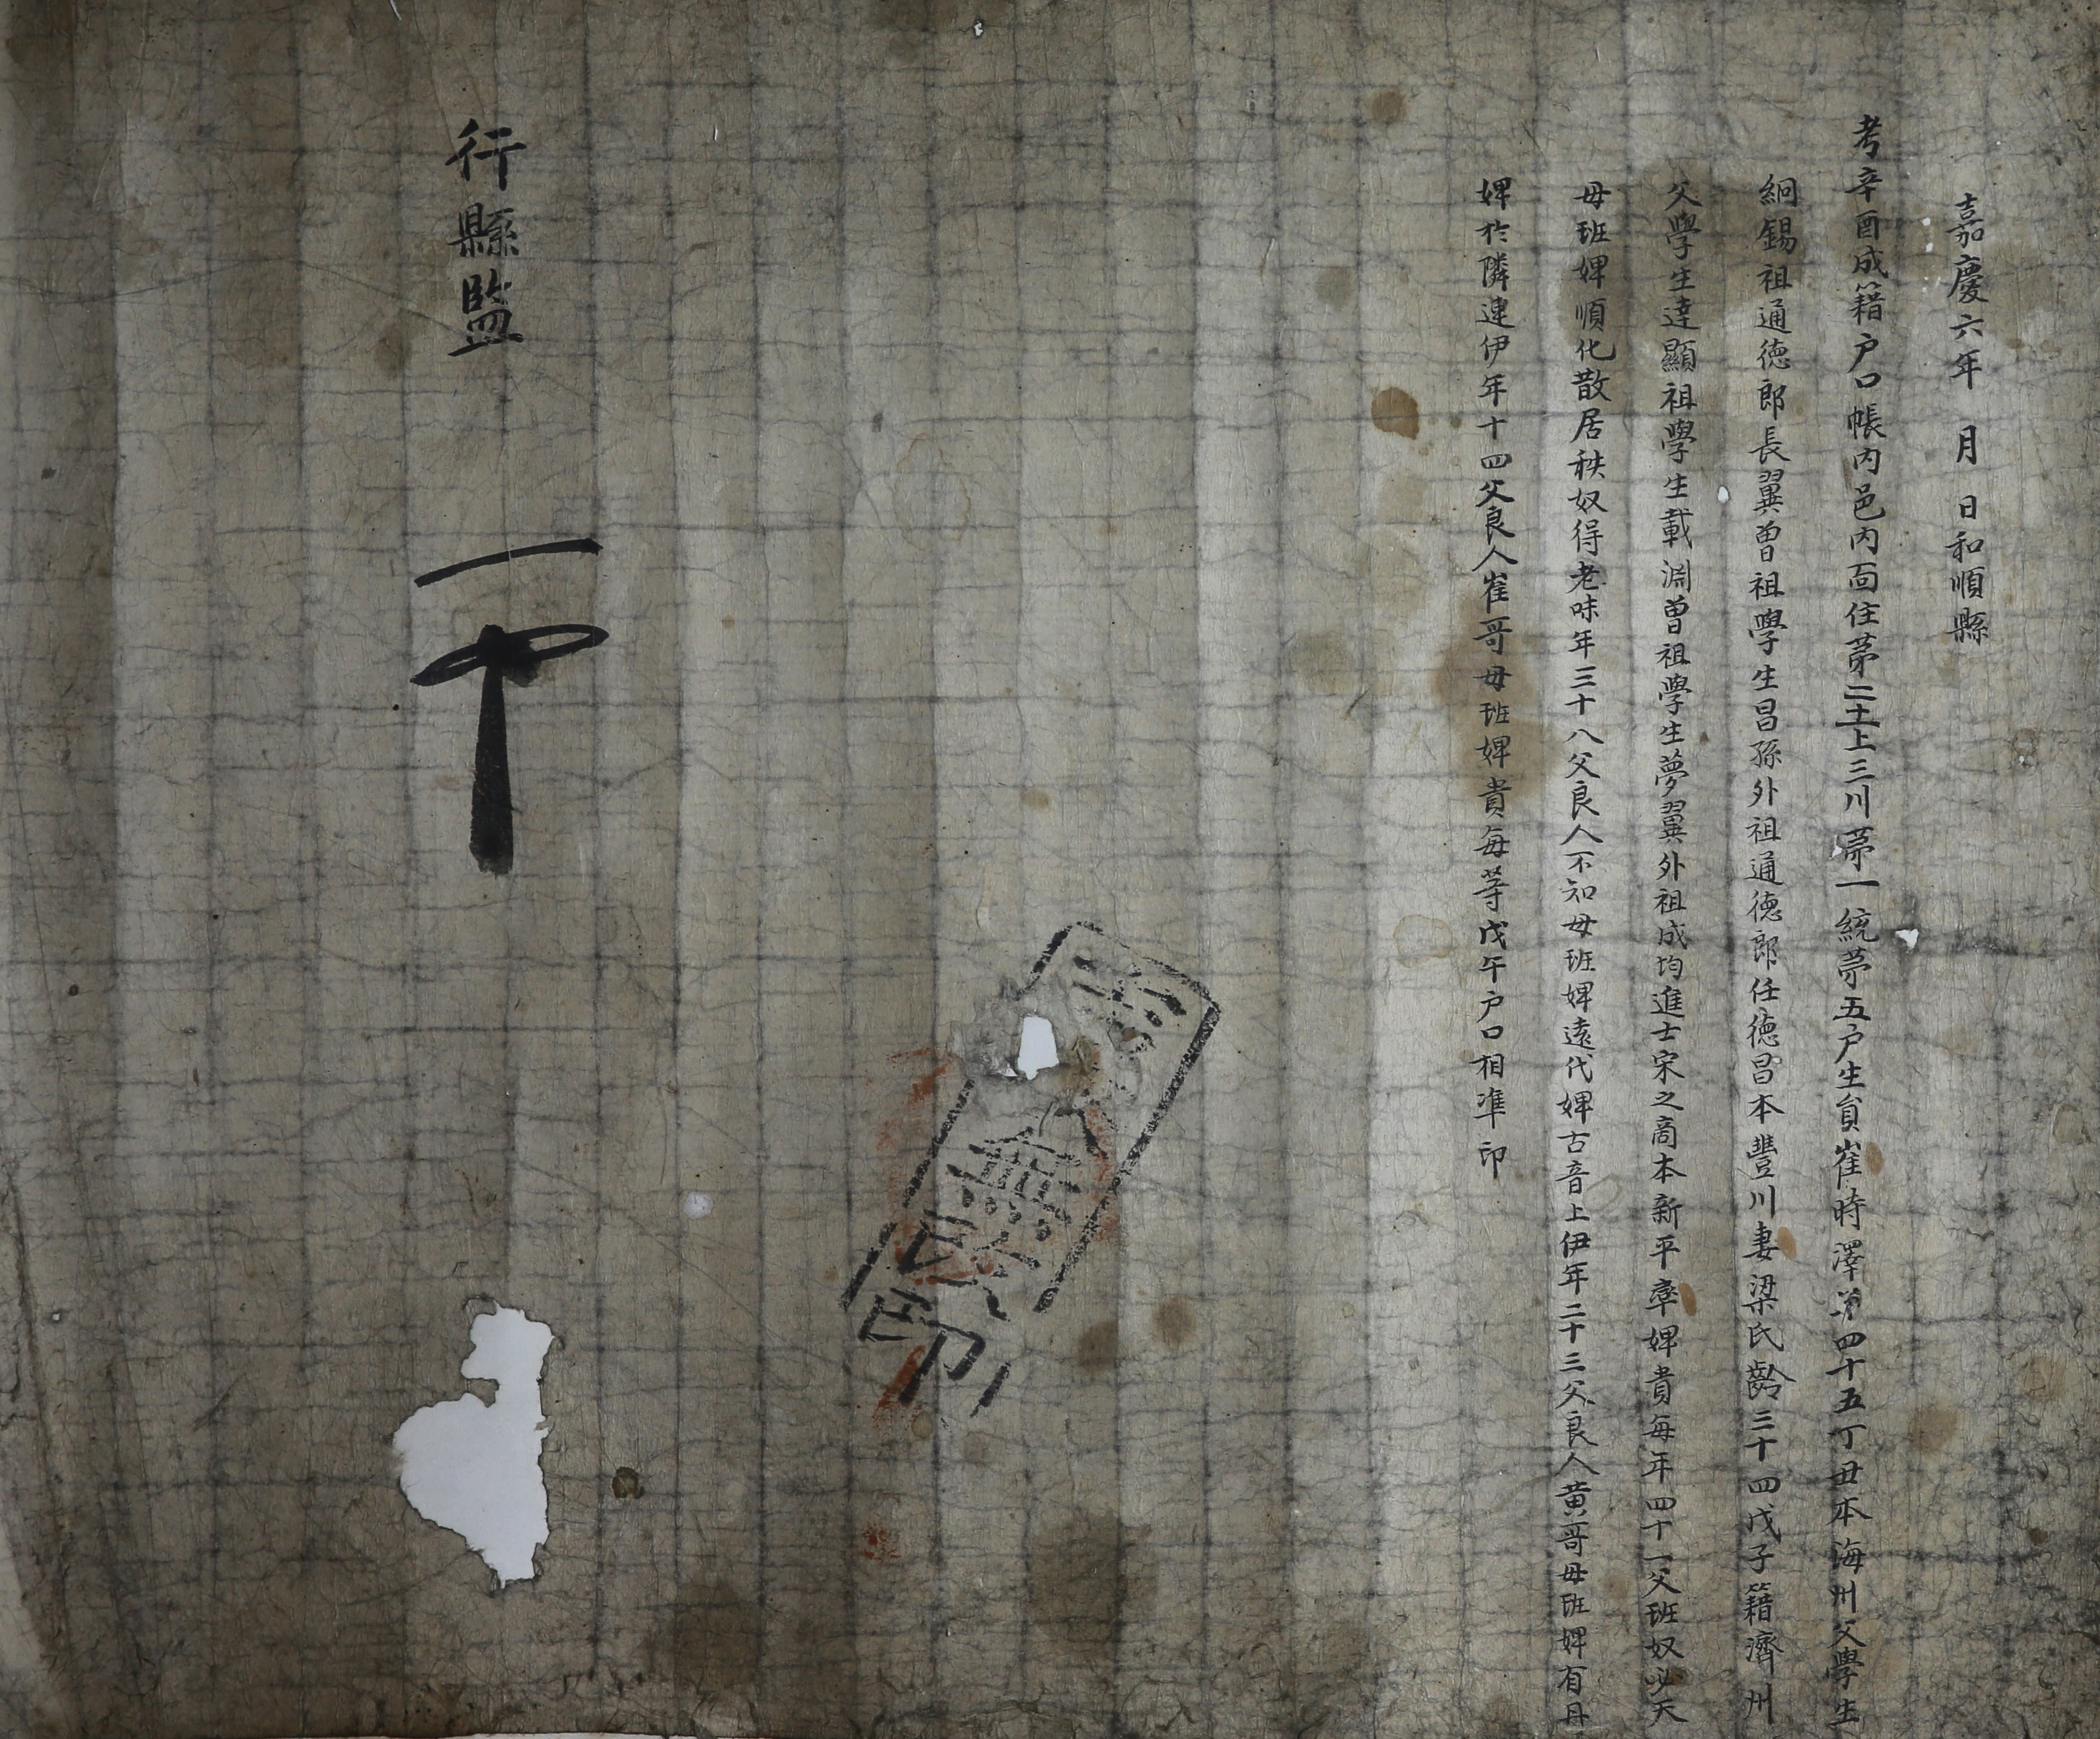 嘉慶六年 月 日和順縣
考辛酉成籍户口帳內邑內面住第二土上三川第一統第五户生員崔時澤年四十五丁丑本海州父學生
絅錫祖通德郎長翼曾祖學生昌孫外祖通德郎任德昌本豐川妻梁氏齡三十四戊子籍濟州
父學生達顯祖學生載淵曾祖學生夢翼外祖成均進士宋之商本新平率婢貴每年四十一父班奴必天
母班婢順化散居秩奴得老味年三十八父良人不知母班婢遠代婢古音上伊年二十三父良人黃哥母班婢有丹
婢於隣連伊年十四父良人崔哥母班婢貴每等戊午户口相準印
行縣監
無
印